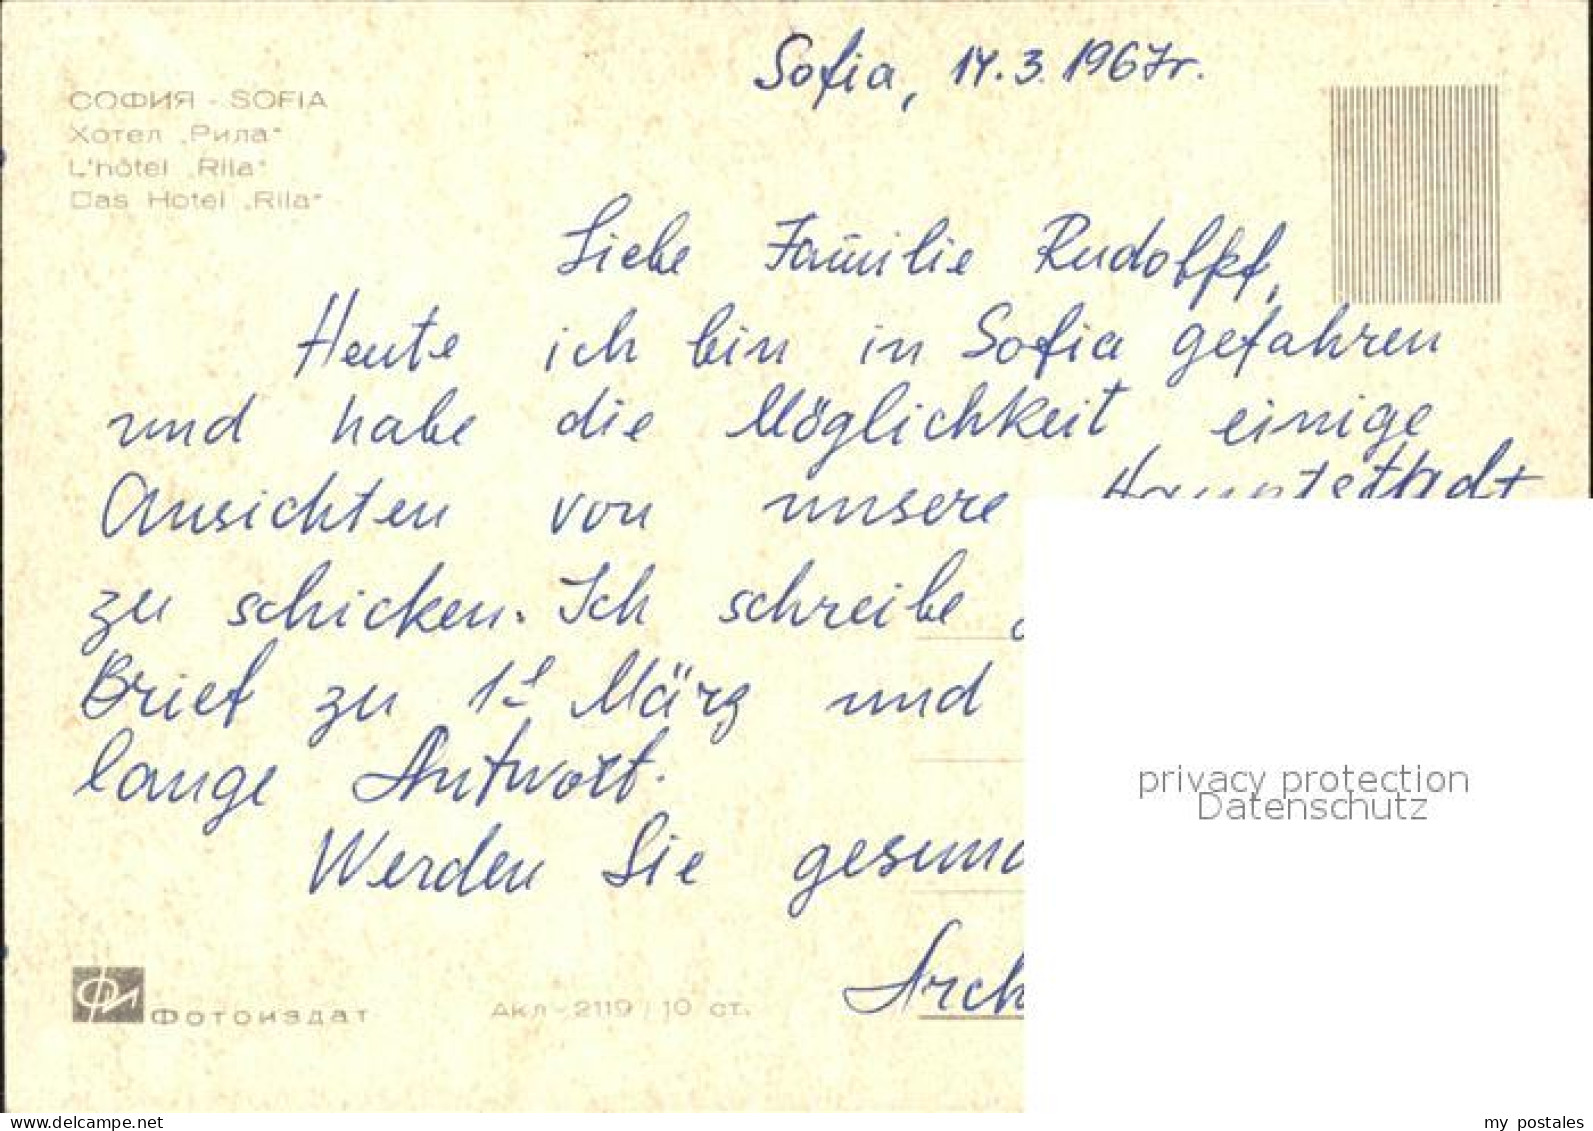 Sofia, 14.3.1967г.
СОФИЯ - SOFIA
Хотел „Рила“
L'hôtel „Rila“
Das Hotel „Rila“
Liebe Familie Rudolfpf,
Heute ich bin in Sofia gefahren
und habe die Möglichkeit einige
Ansichten von unsere Hauptstadt
zu schicken. Ich schreibe
Brief zu März und
lange Antwort.
Werden Sie gesund
Arch
Фотоиздат
Акл-2119 / 10 ст.
privacy protection
Datenschutz
www.delcampe.net
my_postales